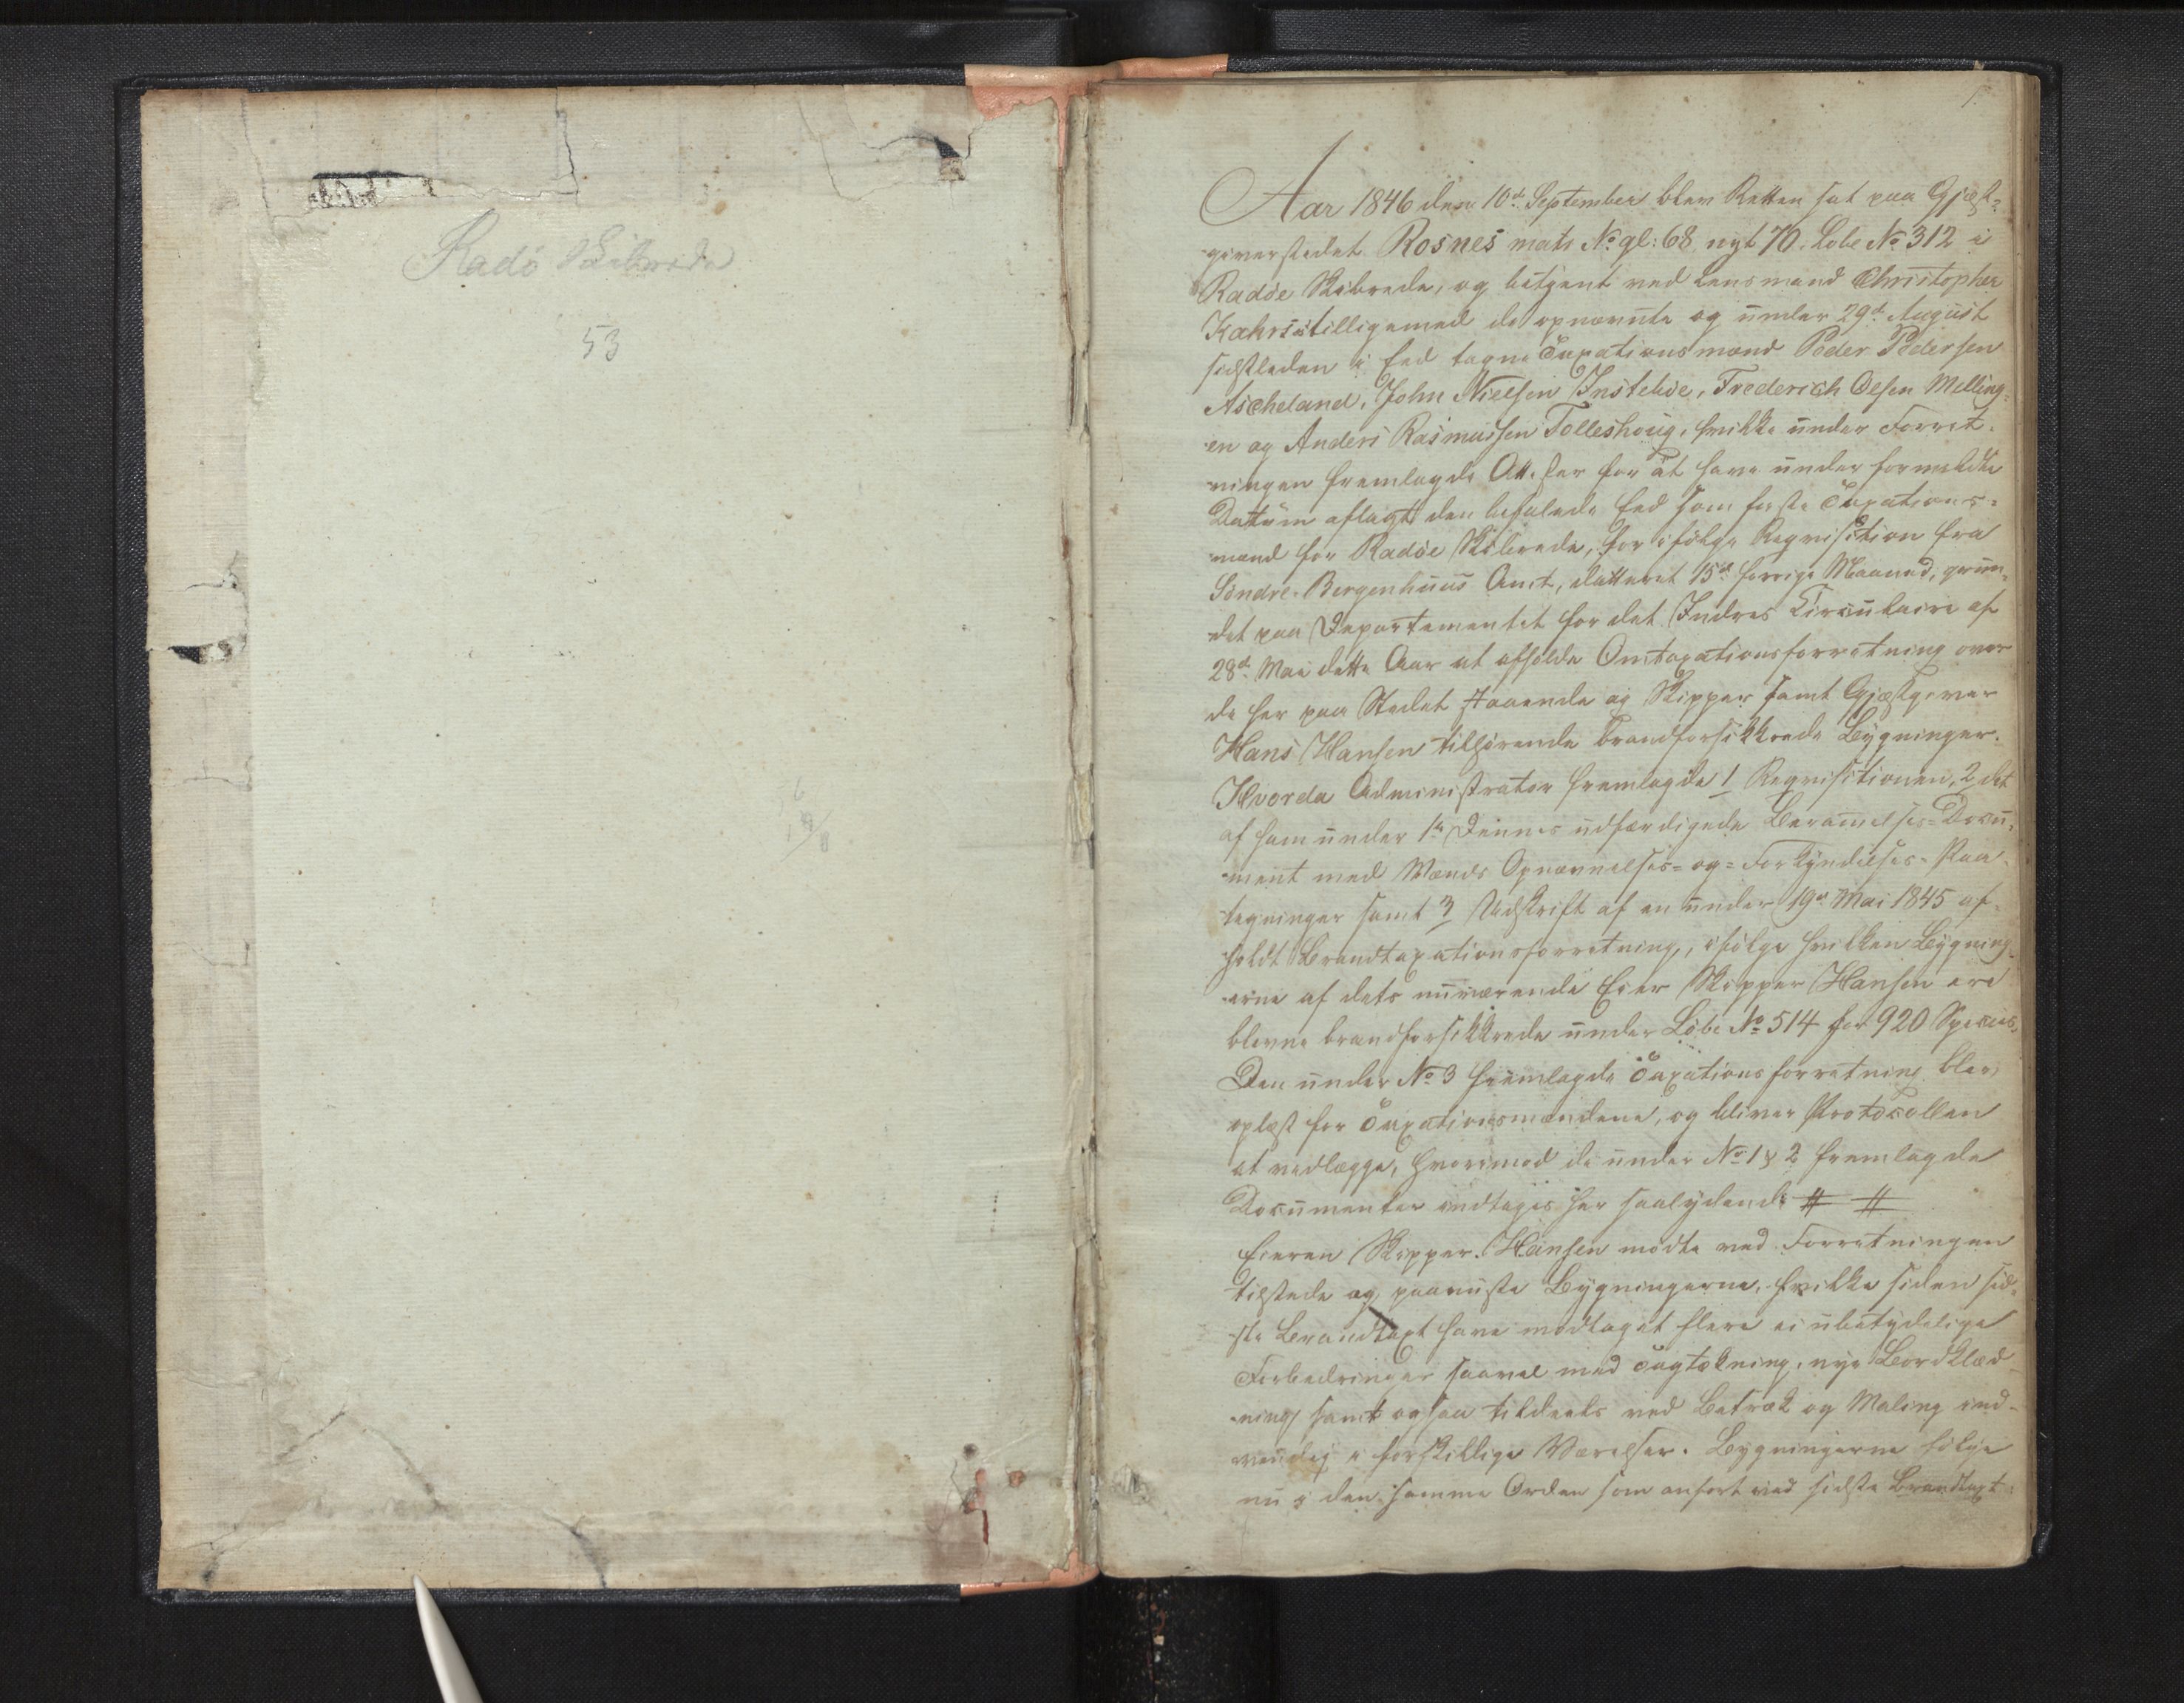 Radö Skibrede
53
1.
Aar 1846 den 10de September blev Retten sat paa Gjæst-
giverstedet Rosnes matr No gl: 68 nyt 70. Løbe No 312 i
Radöe Skibrede, og betjent ved Lensmand Christopher
Kahrs tilligemed de opnævnte og under 29de August
sidstleden i Eed tagne Taxationsmænd Peder Pedersen
Ascheland, John Nielsen Instebøe, Frederich Olsen Melling-
en og Anders Rasmussen Tolleshoug, hvilke under Forret-
ningen fremlagde Attester for at have under formeldte
Dattum aflagt den befalede Eed som faste Taxations-
mænd for Radöe Skibrede, for ifølge Reqvisition fra
Söndre Bergenhuus Amt, datteret 15de forrige Maaned, grun-
det paa Departementet for det Indres Circulaire af
28de Mai dette Aar at afholde Omtaxationsforretning over
de her paa Stedet staaende og Skipper samt Gjæstgiver
Hans Hansen tilhörende brandforsikkrede Bygninger.
Hvorda Administrator fremlagde 1 Reqvisitionen, 2 det
af ham under 1te Dennes udfærdigede Berammelses-Docu-
ment med Mænds Opnævnelses- og Forkyndelses-Paa-
tegninger samt 3 Udskrift af en under 19de Mai 1845 af-
holdt Brandtaxationsforretning, ifølge hvilken Bygning-
erne af dets nuværende Eier Skipper Hansen ere
blevne brandforsikkrede under Löbe No 514 for 920 Species.
Den under No 3 fremlagde Taxationsforretning blev
oplæst for Taxationsmændene, og bliver Protocollen
at vedlægge, hvorimod de under No 1 & 2 fremlagde
Documenter indtages her saalydende # #
Eieren Skipper Hansen mödte ved Forretningen
tilstede og paaviiste Bygningerne, hvilke siden sid-
ste Brandtaxt have modtaget flere ei ubetydelige
Forbedringer saavel med Tagtækning, nye Bordklæd-
ning samt ogsaa tildeels ved Betræk og Maling ind-
vendig i forskillige Værelser. Bygningerne følge
nu i den samme Orden som anfört ved sidste Brandtaxt: